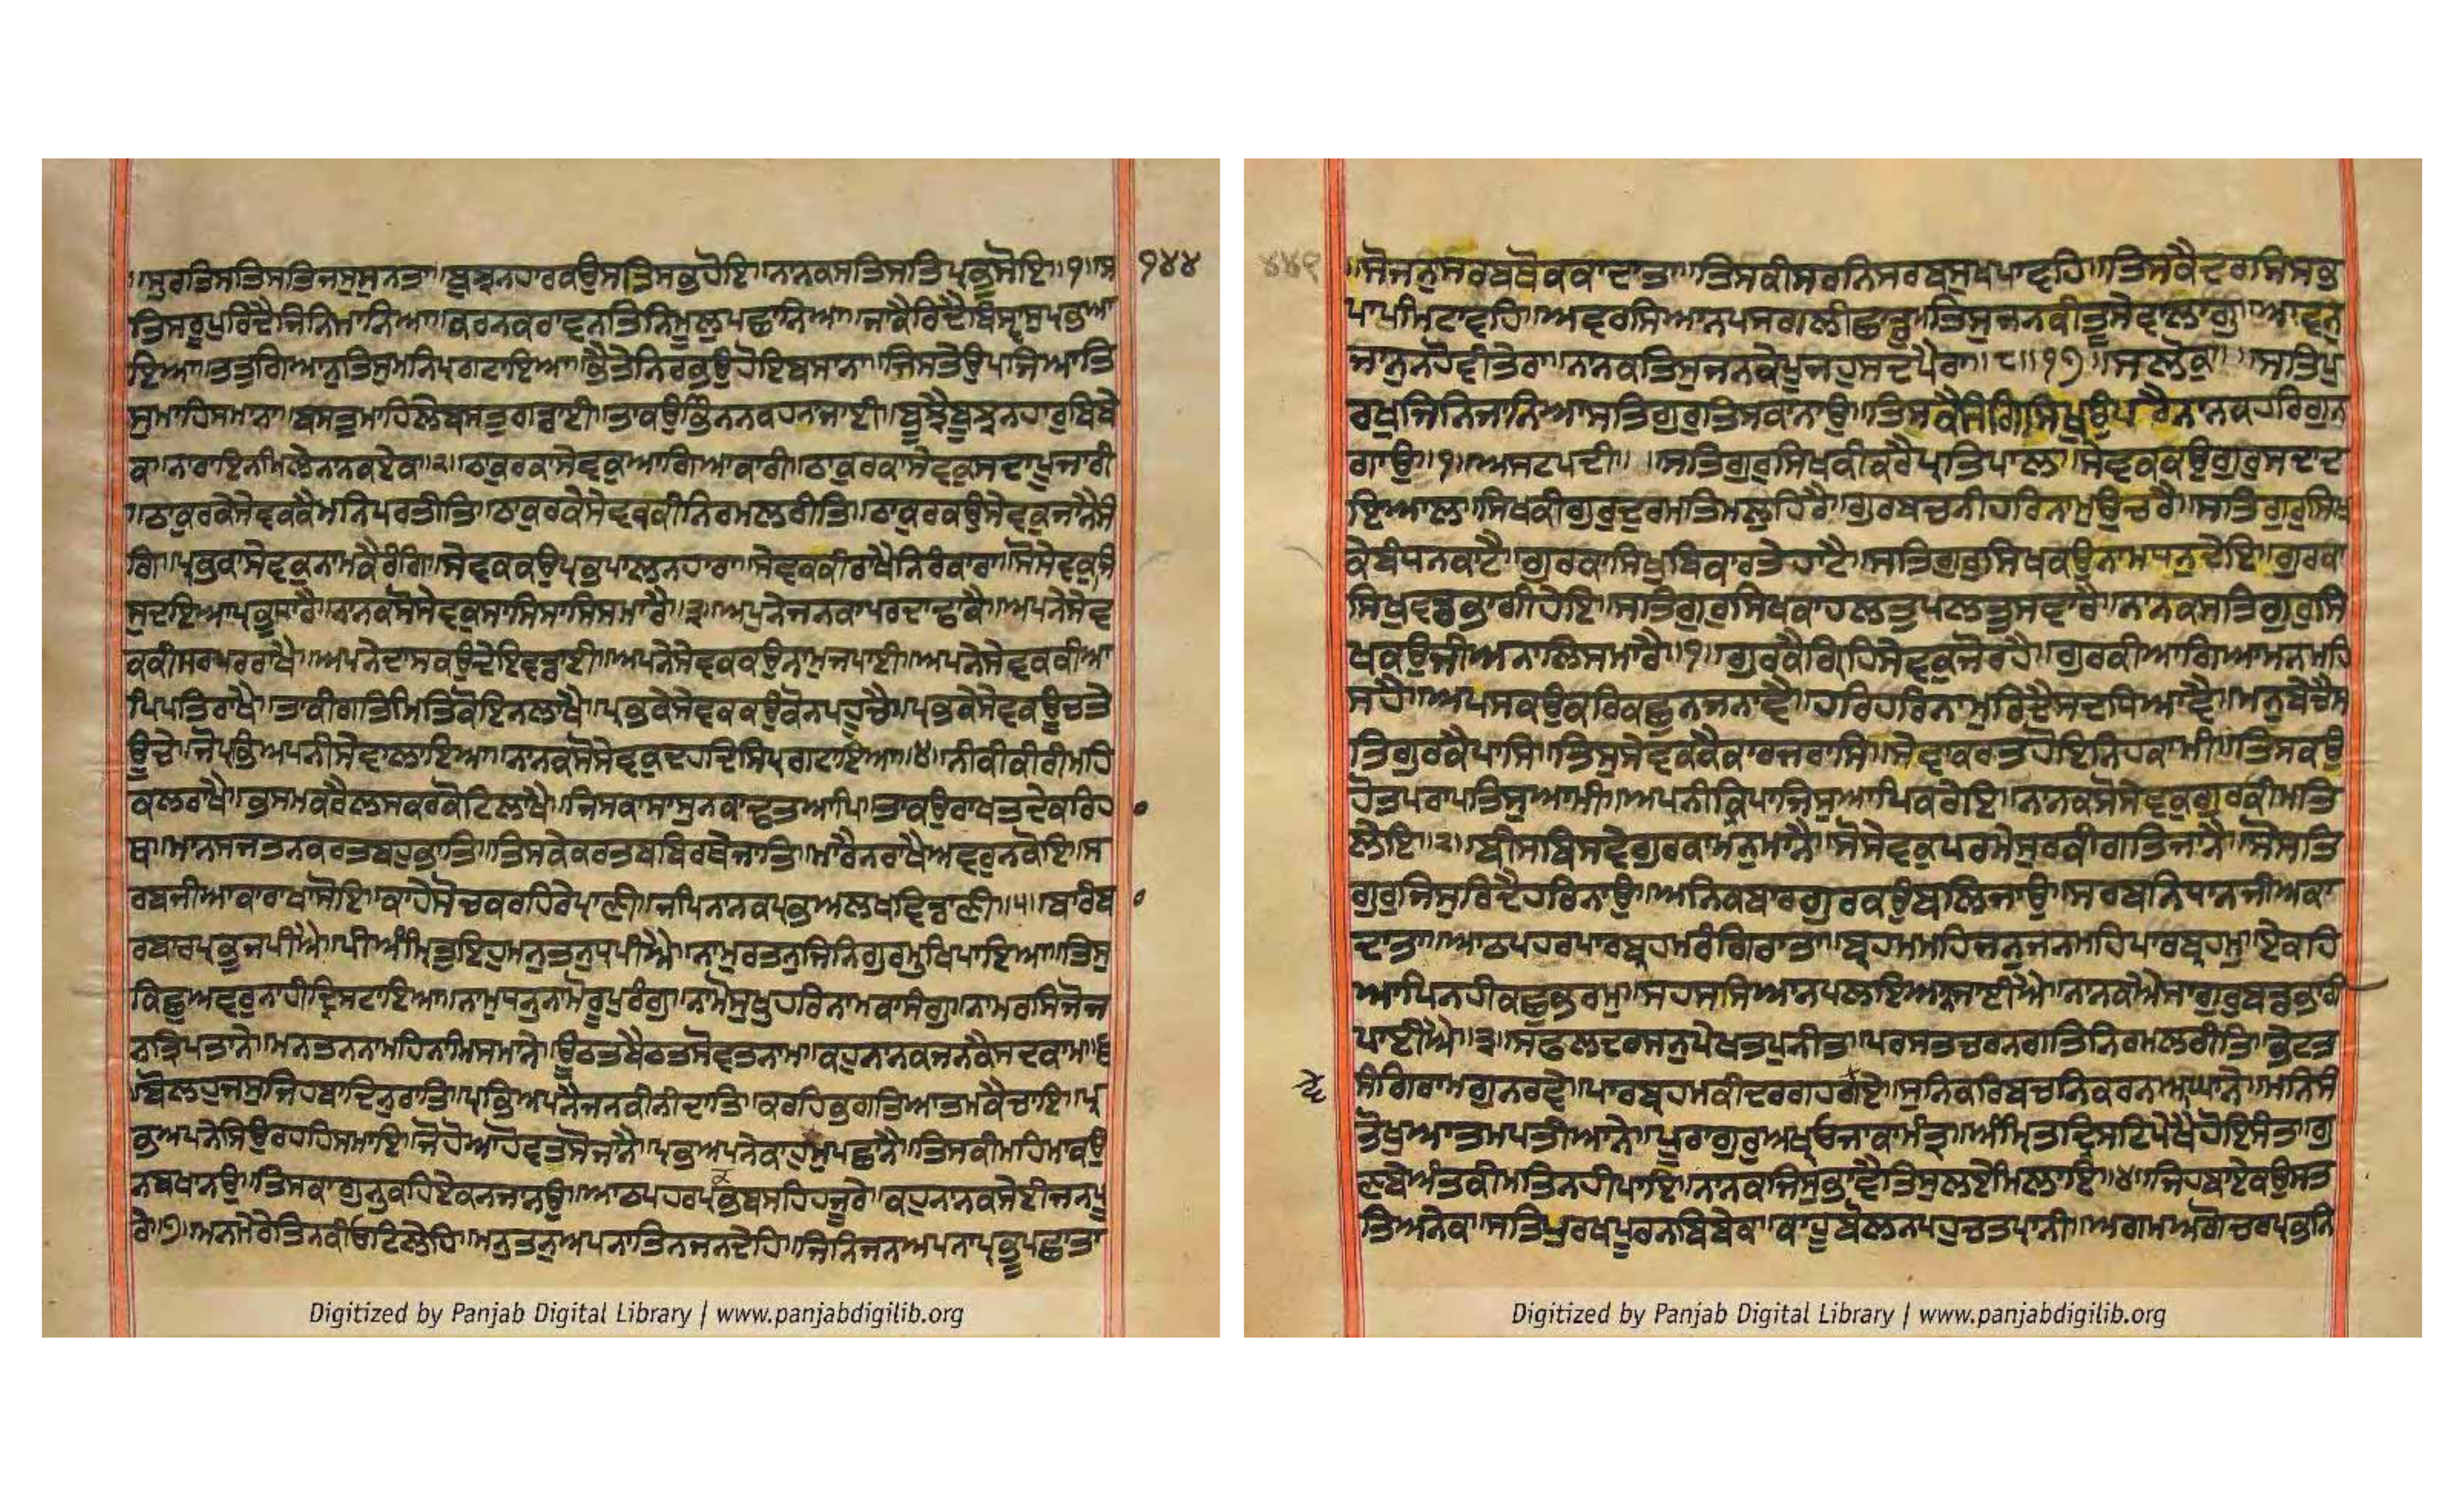 ॥ਸੁਰਤਿਸਤਿਸਤਿਜਸੁਸੁਨਤਾ॥ਬੁਝਨਹਾਰਕਉਸਤਿਸਭਹੋਇ॥ਨਾਨਕਸਤਿਸਤਿਪ੍ਰਭੁਸੋਇ॥੧॥ਸ ੧੪੪
ਤਿਸਰੂਪੁਰਿਦੈਜਿਨਿਮਾਨਿਆ॥ਕਰਨਕਰਾਵਨਤਿਨਿਮੂਲੁਪਛਾਨਿਆ॥ਜਾਕੈਰਿਦੈਬਿਸ੍ਵਾਸੁਪ੍ਰਭਆ
ਇਆ॥ਤਤੁਗਿਆਨੁਤਿਸੁਮਨਿਪ੍ਰਗਟਾਇਆ॥ਭੈਤੇਨਿਰਭਉਹੋਇਬਸਾਨਾ॥ਜਿਸਤੇਉਪਜਿਆਤਿ
ਸੁਮਾਹਿਸਮਾਨਾ॥ਬਸਤੁਮਾਹਿਲੇਬਸਤੁਗਡਾਈ॥ਤਾਕਉਭਿੰਨਨਕਹਨਾਜਾਈ॥ਬੂਝੈਬੂਝਨਹਾਰੁਬਿਬੇ
ਕ॥ਨਾਰਾਇਨਮਿਲੇਨਾਨਕਏਕ॥੨॥ਠਾਕੁਰਕਾਸੇਵਕੁਆਗਿਆਕਾਰੀ॥ਠਾਕੁਰਕਾਸੇਵਕੁਸਦਾਪੂਜਾਰੀ
॥ਠਾਕੁਰਕੇਸੇਵਕਕੈਮਨਿਪਰਤੀਤਿ॥ਠਾਕੁਰਕੇਸੇਵਕਕੀਨਿਰਮਲਰੀਤਿ॥ਠਾਕੁਰਕਉਸੇਵਕੁਜਾਨੈਸੰ
ਗਿ॥ਪ੍ਰਭਕਾਸੇਵਕੁਨਾਮਕੈਰੰਗਿ॥ਸੇਵਕਕਉਪ੍ਰਭਪਾਲਨਹਾਰਾ॥ਸੇਵਕਕੀਰਾਖੈਨਿਰੰਕਾਰਾ॥ਸੋਸੇਵਕੁਜਿ
ਸੁਦਇਆਪ੍ਰਭੁਧਾਰੈ॥ਨਾਨਕਸੋਸੇਵਕੁਸਾਸਿਸਾਸਿਸਮਾਰੈ॥੩॥ਅਪੁਨੇਜਨਕਾਪਰਦਾਢਾਕੈ॥ਅਪਨੇਸੇਵ
ਕਕੀਸਰਪਰਰਾਖੈ॥ਅਪਨੇਦਾਸਕਉਦੇਇਵਡਾਈ॥ਅਪਨੇਸੇਵਕਕਉਨਾਮੁਜਪਾਈ॥ਅਪਨੇਸੇਵਕਕੀਆ
ਪਿਪਤਿਰਾਖੈ॥ਤਾਕੀਗਤਿਮਿਤਿਕੋਇਨਲਾਖੈ॥ਪ੍ਰਭਕੇਸੇਵਕਕਉਕੋਨਪਹੂਚੈ॥ਪ੍ਰਭਕੇਸੇਵਕਊਚਤੇ
ਊਚੇ॥ਜੋਪ੍ਰਭਿਅਪਨੀਸੇਵਾਲਾਇਆ॥ਨਾਨਕਸੋਸੇਵਕੁਦਹਦਿਸਿਪ੍ਰਗਟਾਇਆ॥੪॥ਨੀਕੀਕੀਰੀਮਹਿ
ਕਲਰਾਖੈ॥ਭਸਮਕਰੈਲਸਕਰਕੋਟਿਲਾਖੈ॥ਜਿਸਕਾਸਾਸੁਨਕਾਢਤਆਪਿ॥ਤਾਕਉਰਾਖਤਦੇਕਰਿਹਾ
ਥ॥ਮਾਨਸਜਤਨਕਰਤਬਹੁਭਾਤਿ॥ਤਿਸਕੇਕਰਤਬਬਿਰਥੇਜਾਤਿ॥ਮਾਰੈਨਰਾਖੈਅਵਰੁਨਕੋਇ॥ਸ
ਰਬਜੀਆਕਾਰਾਖਾਸੋਇ॥ਕਾਹੇਸੋਚਕਰਹਿਰੇਪ੍ਰਾਣੀ॥ਜਪਿਨਾਨਕਪ੍ਰਭਅਲਖਵਿਡਾਣੀ॥੫॥ਬਾਰੰਬਾ
ਰਬਾਰਪ੍ਰਭੁਜਪੀਐ॥ਪੀਅੰਮ੍ਰਿਤੁਇਹੁਮਨੁਤਨੁਧ੍ਰਪੀਐ॥ਨਾਮੁਰਤਨੁਜਿਨਿਗੁਰਮੁਖਿਪਾਇਆ॥ਤਿਸੁ
ਕਿਛੁਅਵਰੁਨਾਹੀਦ੍ਰਿਸਟਾਇਆ॥ਨਾਮੁਧਨੁਨਾਮੋਰੂਪੁਰੰਗੁ॥ਨਾਮੋਸੁਖੁਹਰਿਨਾਮਕਾਸੰਗੁ॥ਨਾਮਰਸਿਜੋਜ
ਨਤ੍ਰਿਪਤਾਨੇ॥ਮਨਤਨਨਾਮਹਿਨਾਮਿਸਮਾਨੇ॥ਊਠਤਬੈਠਤਸੋਵਤਨਾਮ॥ਕਹੁਨਾਨਕਜਨਕੈਸਦਕਾਮ॥੬
॥ਬੋਲਹੁਜਸੁਜਿਹਬਾਦਿਨੁਰਾਤਿ॥ਪ੍ਰਭਿਅਪਨੈਜਨਕੀਨੀਦਾਤਿ॥ਕਰਹਿਭਗਤਿਆਤਮਕੈਚਾਇ॥ਪ੍ਰ
ਭਅਪਨੇਸਿਉਰਹਹਿਸਮਾਇ॥ਜੋਹੋਆਹੋਵਤਸੋਜਾਨੈ॥ਪ੍ਰਭਅਪਨੇਕਾਹੁਕਮੁਪਛਾਨੈ॥ਤਿਸਕੀਮਹਿਮਾਕਉ
ਨਬਖਾਨਉ॥ਤਿਸਕਾਗੁਨੁਕਹਿਏਕਨਜਾਨਉ॥ਆਠਪਹਰਪ੍ਰਭਬਸਹਿਹਜੂਰੇ॥ਕਹੁਨਾਨਕਸੇਈਜਨਪੂ
ਰੇ॥੭॥ਮਨਮੇਰੇਤਿਨਕੀਓਟਿਲੇਹਿ॥ਮਨੁਤਨੁਅਪਨਾਤਿਨਜਨਦੇਹਿ॥ਜਿਨਿਜਨਅਪਨਾਪ੍ਰਭੂਪਛਾਤਾ
੪੪੧ ॥ਸੋਜਨੁਸਰਬਥੋਕਕਾਦਾਤਾ॥ਤਿਸਕੀਸਰਨਿਸਰਬਸੁਖਪਾਵਹਿ॥ਤਿਸਕੈਦਰਸਿਸਭ
ਪਾਪਮਿਟਾਵਹਿ॥ਅਵਰਸਿਆਨਪਸਗਲੀਛਾਡੁ॥ਤਿਸੁਜਨਕੀਤੂਸੇਵਾਲਾਗੁ॥ਆਵਨੁ
ਜਾਨੁਨਹੋਵੀਤੇਰਾ॥ਨਾਨਕਤਿਸੁਜਨਕੇਪੂਜਹੁਸਦਪੈਰਾ॥੮॥੧੭॥ਸਲੋਕੁ॥ਸਤਿਪੁ
ਰਖੁਜਿਨਿਜਾਨਿਆਸਤਿਗੁਰੁਤਿਸਕਾਨਾਉ॥ਤਿਸਕੈਸੰਗਿਸਿਖੁਉਧਰੈਨਾਨਕਹਰਿਗੁਨ
ਗਾਉ॥੧॥ਅਸਟਪਦੀ॥ਸਤਿਗੁਰੁਸਿਖਕੀਕਰੈਪ੍ਰਤਿਪਾਲ॥ਸੇਵਕਕਉਗੁਰੁਸਦਾਦ
ਇਆਲ॥ਸਿਖਕੀਗੁਰੁਦੁਰਮਤਿਮਲੁਹਿਰੈ॥ਗੁਰਬਚਨੀਹਰਿਨਾਮੁਉਚਰੈ॥ਸਤਿਗੁਰੁਸਿਖ
ਕੇਬੰਧਨਕਾਟੈ॥ਗੁਰਕਾਸਿਖੁਬਿਕਾਰਤੇਹਾਟੈ॥ਸਤਿਗੁਰੁਸਿਖਕਉਨਾਮਧਨੁਦੇਇ॥ਗੁਰਕਾ
ਸਿਖੁਵਡਭਾਗੀਹੇਇ॥ਸਤਿਗੁਰੁਸਿਖਕਾਹਲਤੁਪਲਤੁਸਵਾਰੈ॥ਨਾਨਕਸਤਿਗੁਰੁਸਿ
ਖਕਉਜੀਅਨਾਲਿਸਮਾਰੈ॥੧॥ਗੁਰਕੈਗ੍ਰਿਹਿਸੇਵਕੁਜੋਰਹੈ॥ਗੁਰਕੀਆਗਿਆਮਨਮਹਿ
ਸਹੈ॥ਆਪਸਕਉਕਰਿਕਛੁਨਜਨਾਵੈ॥ਹਰਿਹਰਿਨਾਮੁਰਿਦੈਸਦਧਿਆਵੈ॥ਮਨੁਬੇਚੈਸ
ਤਿਗੁਰਕੈਪਾਸਿ॥ਤਿਸੁਸੇਵਕਕੈਕਾਰਜਰਾਸਿ॥ਸੇਵਾਕਰਤਹੋਇਨਿਹਕਾਮੀ॥ਤਿਸਕਉ
ਹੋਤਪਰਾਪਤਿਸੁਆਮੀ॥ਅਪਨੀਕ੍ਰਿਪਾਜਿਸੁਆਪਿਕਰੇਇ॥ਨਾਨਕਸੋਸੇਵਕੁਗੁਰਕੀਮਤਿ
ਲੇਇ॥੨॥ਬੀਸਬਿਸਵੇਗੁਰਕਾਮਨੁਮਾਨੈ॥ਸੋਸੇਵਕੁਪਰਮੇਸੁਰਕੀਗਤਿਜਾਨੈ॥ਸੋਸਤਿ
ਗੁਰੁਜਿਸੁਰਿਦੈਹਰਿਨਾਉ॥ਅਨਿਕਬਾਰਗੁਰਕਉਬਲਿਜਾਉ॥ਸਰਬਨਿਧਾਨਜੀਅਕਾ
ਦਾਤਾ॥ਆਠਪਹਰਪਾਰਬ੍ਰਹਮਰੰਗਿਰਾਤਾ॥ਬ੍ਰਹਮਮਹਿਜਨੁਜਨਮਹਿਪਾਰਬ੍ਰਹਮੁ॥ਏਕਹਿ
ਆਪਿਨਹੀਕਛੁਭਰਮੁ॥ਸਹਸਸਿਆਨਪਲਇਆਨਜਾਈਐ॥ਨਾਨਕਐਸਾਗੁਰੁਬਡਭਾਗੀ
ਪਾਈਐ॥੩॥ਸਫਲਦਰਸਨੁਪੇਖਤਪੁਨੀਤ॥ਪਰਸਤਚਰਨਗਤਿਨਿਰਮਲਰੀਤਿ॥ਭੇਟਤ
ਸੰਗਿਰਾਮਗੁਨਰਵੇ॥ਪਾਰਬ੍ਰਹਮਕੀਦਰਗਹਗਵੇ॥ਸੁਨਿਕਰਿਬਚਨਕਰਨਆਘਾਨੇ॥ਮਨਿਸੰ
ਤੋਖੁਆਤਮਪਤੀਆਨੇ॥ਪੂਰਾਗੁਰੁਅਖ੍ਯਓਜਾਕਾਮੰਤ੍ਰ॥ਅੰਮ੍ਰਿਤਦ੍ਰਿਸਟਿਪੇਖੈਹੋਇਸੰਤ॥ਗੁ
ਣਬੇਅੰਤਕੀਮਤਿਨਹੀਪਾਇ॥ਨਾਨਕਜਿਸੁਭਾਵੈਤਿਸੁਲਏਮਿਲਾਇ॥੪॥ਜਿਹਬਾਏਕਉਸਤ
ਤਿਅਨੇਕ॥ਸਤਿਪੁਰਖਪੂਰਨਬਿਬੇਕ॥ਕਾਹੂਬੋਲਨਪਹੁਚਤਪ੍ਰਾਨੀ॥ਅਗਮਅਗੋਚਰਪ੍ਰਭਨਿ
Digitized by Panjab Digital Library | www.panjabdigilib.org
Digitized by Panjab Digital Library | www.panjabdigilib.org